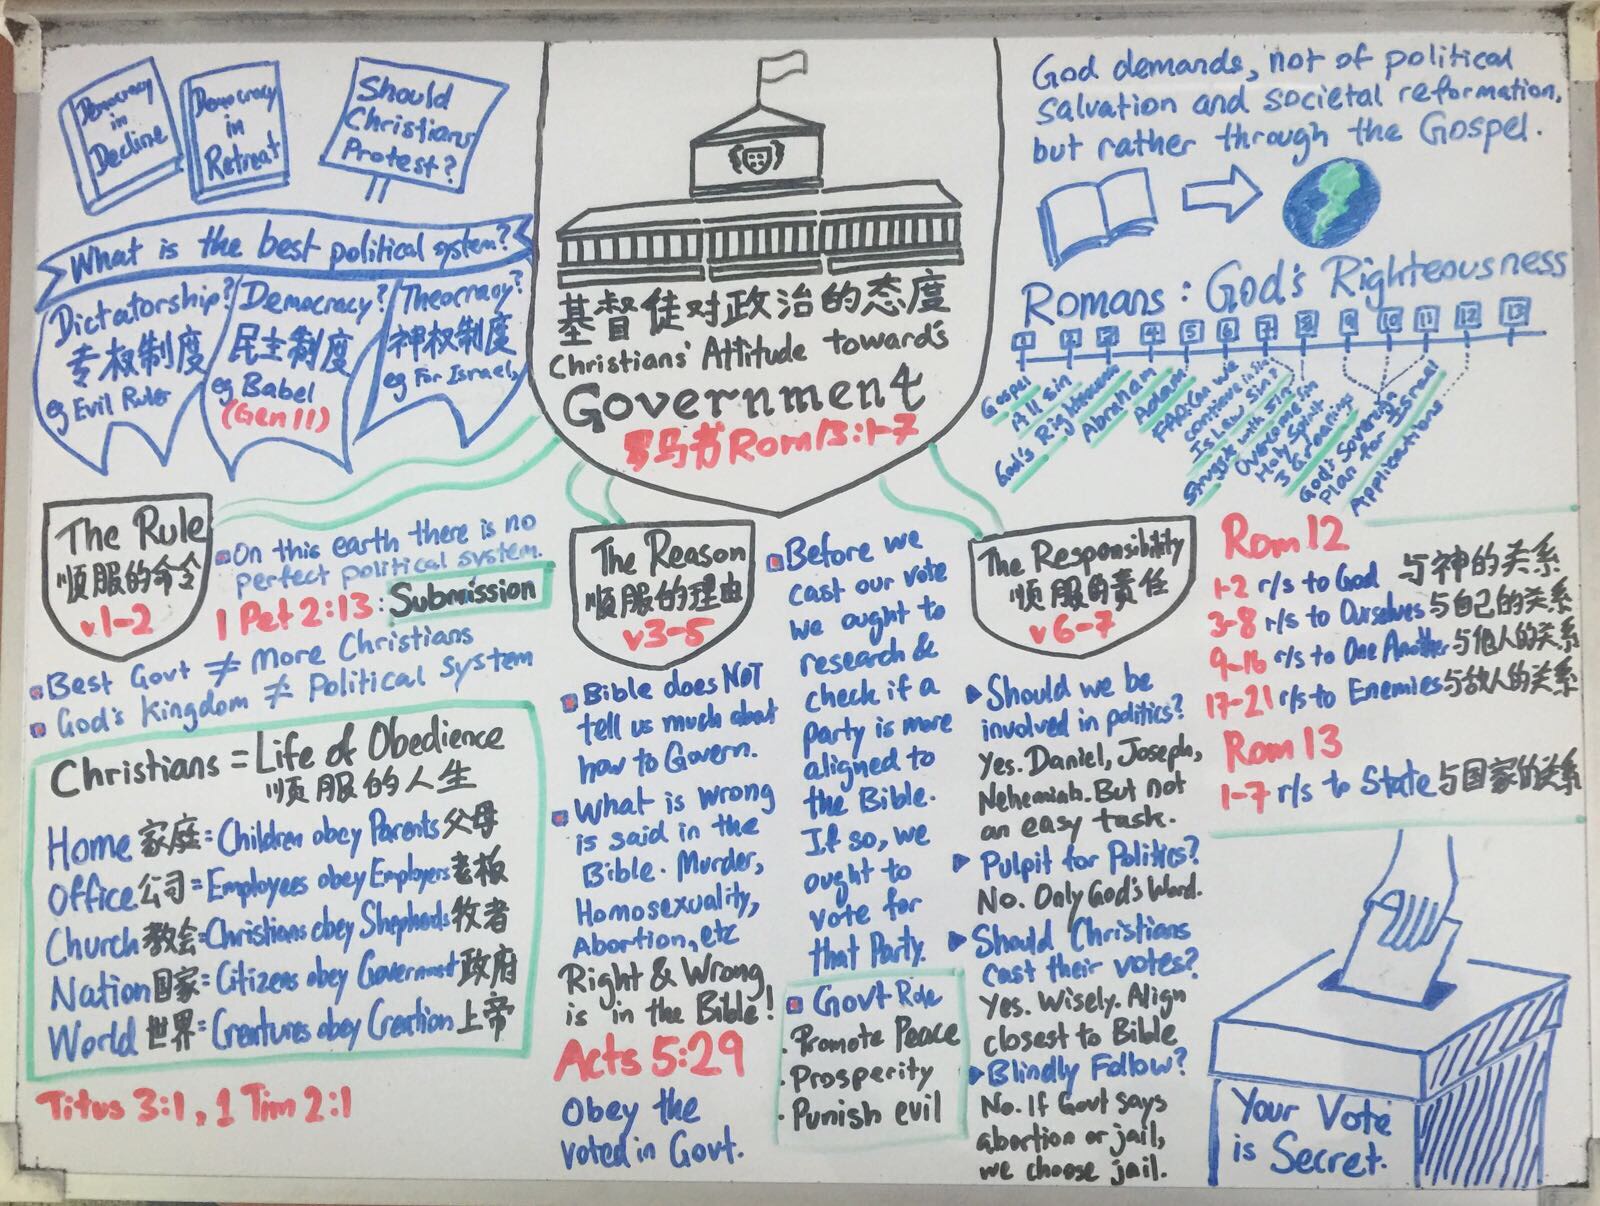 Democracy
in
Decline
Democracy
in
Retreat
Should
Christians
Protest?
What is the best political system?
Dictatorship?
专权制度
eg Evil Ruler
Democracy?
民主制度
eg Babel
(Gen 11)
Theocracy?
神权制度
eg For Israel,
基督徒对政治的态度
Christians' Attitude towards
Government
罗马书 Rom 13:1-7
God demands, not of political
salvation and societal reformation,
but rather through the Gospel.
Romans: God's Righteousness
1 2 3 4 5 6 7 8 9 10 11 12 13
Gospel
All sin
God's Righteous
Abraham
Adam
FAQ: Can we
continue in sin
Is Law sin?
Struggle with sin
Overcome sin
Holy Spirit
3 Groanings
God's Sovereign
Plan for Israel
Applications
The Rule
顺服的命令
v1-2
On this earth there is no
perfect political system.
1 Pet 2:13: Submission
Best Govt ≠ More Christians
God's Kingdom ≠ Political System
Christians = Life of Obedience
顺服的人生
Home 家庭: Children obey Parents 父母
Office 公司= Employees obey Employers 老板
Church 教会= Christians obey Shepherds 牧者
Nation 国家: Citizens obey Government 政府
World 世界: Creatures obey Creation 上帝
Titus 3:1, 1 Tim 2:1
The Reason
顺服的理由
v3-5
Bible does NOT
tell us much about
how to Govern.
What is wrong
is said in the
Bible. Murder,
Homosexuality,
Abortion, etc
Right & Wrong
is in the Bible!
Acts 5:29
Obey the
voted in Govt.
Before we
cast our vote
we ought to
research &
check if a
party is more
aligned to
the Bible.
If so, we
ought to
vote for
that Party.
Govt Role
· Promote Peace
· Prosperity
· Punish evil
The Responsibility
顺服的责任
v6-7
Should we be
involved in politics?
Yes. Daniel, Joseph,
Nehemiah. But not
an easy task.
Pulpit for Politics?
No. Only God's Word.
Should Christians
cast their votes?
Yes. Wisely. Align
closest to Bible
Blindly Follow?
No. If Govt says
abortion or jail,
we choose jail.
Rom 12
1-2 r/s to God 与神的关系
3-8 r/s to Ourselves 与自己的关系
9-16 r/s to One Another 与他人的关系
17-21 r/s to Enemies 与敌人的关系
Rom 13
1-7 r/s to State 与国家的关系
Your Vote
is Secret.